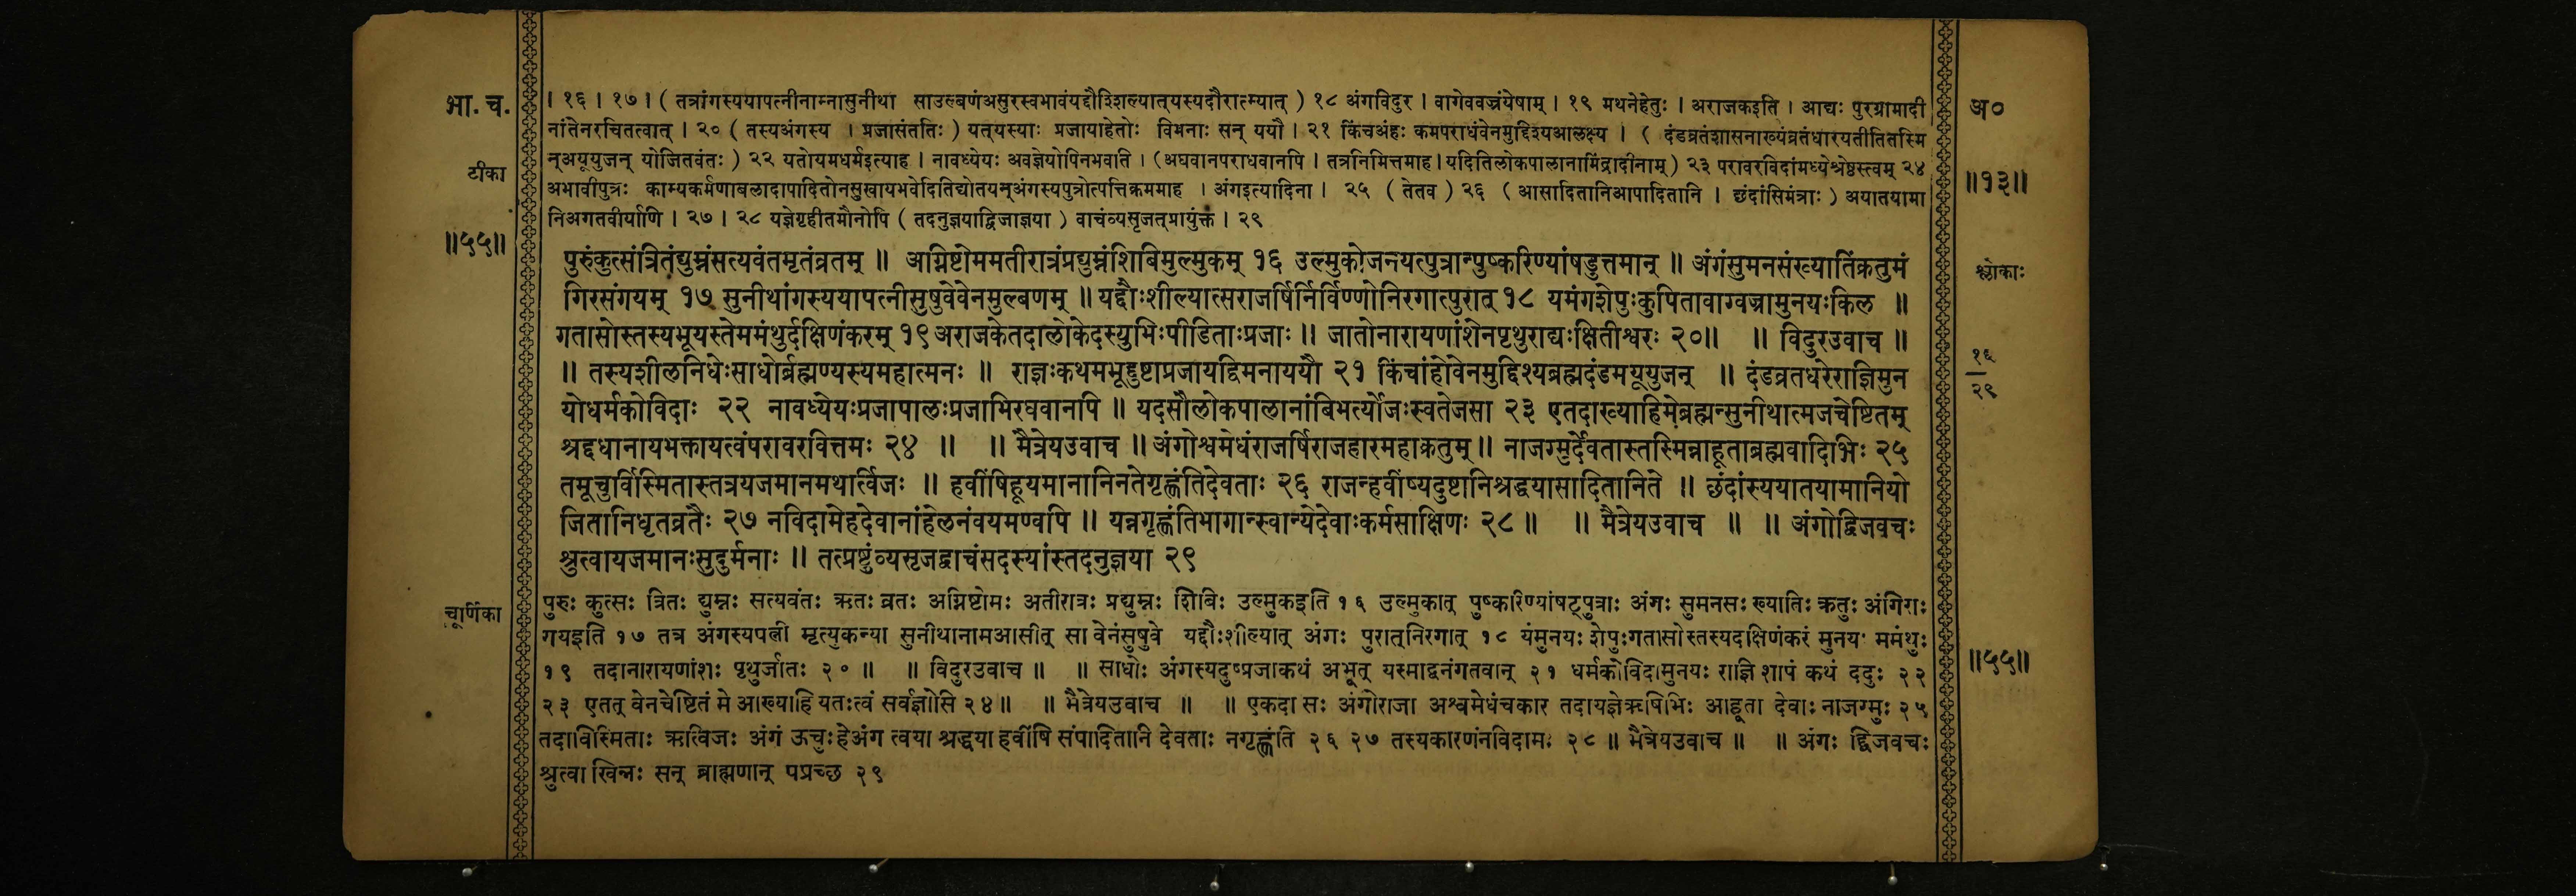 भा. च.
टीका
॥५५॥
। १६ । १७ । ( तत्रांगस्ययापत्नीनाम्नासुनीथा साउल्बणंअसुरस्वभावंयद्दौःश्शिल्यात्‌यस्यदौरात्म्यात् ) १८ अंगविदुर । वागेववज्रंयेषाम् । १९ मथनेहेतुः । अराजकइति । आद्यः पुरग्रामादी
नांतेनरचितत्वात् । २० ( तस्यअंगस्य । प्रजासंततिः ) यत्‌यस्याः प्रजायाहेतोः विमनाः सन् ययौ । २१ किंचअंहः कमपराधंवेनमुद्दिश्यआलक्ष्य । ( दंडव्रतंशासनाख्यंव्रतंधारयतीतितस्मि
न्‌अयूयुजन् योजितवंतः ) २२ यतोयमधर्मइत्याह । नावध्येयः अवज्ञेयोपिनभवाति । (अघवानपराधवानपि । तत्रनिमित्तमाह।यदितिलोकपालानामिंद्रादीनाम्) २३ परावरविदांमध्येश्रेष्ठस्त्वम् २४
अभावीपुत्रः काम्यकर्मणाबलादापादितोनसुखायभवेदितिद्योतयन्‌अंगस्यपुत्रोत्पत्तिक्रममाह । अंगइत्यादिना । २५ ( तेतव ) २६ ( आसादितानिआपादितानि । छंदांसिमंत्राः ) अयातयामा
निअगतवीर्याणि । २७ । २८ यज्ञेगृहीतमौनोपि ( तदनुज्ञयाद्विजाज्ञया ) वाचंव्यसृजत्‌प्रायुंक्त । २९
पुरुंकुत्संत्रितंद्युम्नंसत्यवंतमृतंव्रतम् ॥ अग्निष्टोममतीरात्रंप्रद्युम्नंशिबिमुल्मुकम् १६ उल्मुकोजनयत्पुत्रान्पुष्करिण्यांषडुत्तमान् ॥ अंगंसुमनसंख्यातिंक्रतुमं
गिरसंगयम् १७ सुनीथांगस्ययापत्नीसुषुवेवेनमुल्बणम् ॥ यद्दौःशील्यात्सराजर्षिर्निर्विण्णोनिरगात्पुरात् १८ यमंगशेपुःकुपितावाग्वज्रामुनयःकिल ॥
गतासोस्तस्यभूयस्तेममंथुर्दक्षिणंकरम् १९ अराजकेतदालोकेदस्युभिःपीडिताःप्रजाः ॥ जातोनारायणांशेनपृथुराद्यःक्षितीश्वरः २०॥ ॥ विदुरउवाच ॥
॥ तस्यशीलनिधेःसाधोर्ब्रह्मण्यस्यमहात्मनः ॥ राज्ञःकथमभूद्दुष्टाप्रजायद्विमनाययौ २१ किंचांहोवेनमुद्दिश्यब्रह्मदंडमयूयुजन् ॥ दंडव्रतधरेराज्ञिमुन
योधर्मकोविदाः २२ नावध्येयःप्रजापालःप्रजाभिरघवानपि ॥ यदसौलोकपालानांबिभर्त्योजःस्वतेजसा २३ एतदाख्याहिमेब्रह्मन्सुनीथात्मजचेष्टितम्
श्रद्दधानायभक्तायत्वंपरावरवित्तमः २४ ॥ ॥ मैत्रेयउवाच ॥ अंगोश्वमेधंराजर्षिराजहारमहाक्रतुम् ॥ नाजग्मुर्देवतास्तस्मिन्नाहूताब्रह्मवादिभिः २५
तमूचुर्विस्मितास्तत्रयजमानमथार्त्विजः ॥ हवींषिहूयमानानिनतेगृह्णंतिदेवताः २६ राजन्हवींष्यदुष्टानिश्रद्धयासादितानिते ॥ छंदांस्ययातयामानियो
जितानिधृतव्रतैः २७ नविदामेहदेवानांहेलनंवयमण्वपि ॥ यन्नगृह्णंतिभागान्स्वान्येदेवाःकर्मसाक्षिणः २८ ॥ ॥ मैत्रेयउवाच ॥ ॥ अंगोद्विजवचः
श्रुत्वायजमानःसुदुर्मनाः ॥ तत्प्रष्टुंव्यसृजद्वाचंसदस्यांस्तदनुज्ञया २९
चूर्णिका
पुरुः कुत्सः त्रितः द्युम्नः सत्यवंतः ऋतः व्रतः अग्निष्टोमः अतीरात्रः प्रद्युम्नः शिबिः उल्मुकइति १६ उल्मुकात् पुष्करिण्यांषट्पुत्राः अंगः सुमनसः ख्यातिः क्रतुः अंगिराः
गयइति १७ तत्र अंगस्यपत्नी मृत्युकन्या सुनीथानामआसीत् सा वेनंसुषुवे यद्दौःशील्यात् अंगः पुरात्‌निरगात् १८ यंमुनयः शेपुःगतासोस्तस्यदक्षिणंकरं मुनयः ममंथुः
१९ तदानारायणांशः पृथुर्जातः २० ॥ ॥ विदुरउवाच ॥ ॥ साधोः अंगस्यदुष्प्रजाकथं अभूत् यस्माद्वनंगतवान् २१ धर्मकोविदामुनयः राज्ञि शापं कथं ददुः २२
२३ एतत् वेनचेष्टितं मे आख्याहि यतःत्वं सर्वज्ञोसि २४ ॥ ॥ मैत्रेयउवाच ॥ ॥ एकदा सः अंगोराजा अश्वमेधंचकार तदायज्ञेऋषिभिः आहूता देवाः नाजग्मुः २५
तदाविस्मिताः ऋत्विजः अंगं ऊचुःहेअंग त्वया श्रद्धया हवींषि संपादितानि देवताः नगृह्णंति २६ २७ तस्यकारणंनविदामः २८ ॥ मैत्रेयउवाच ॥ ॥ अंगः द्विजवचः
श्रुत्वा खिन्नः सन् ब्राह्मणान् पप्रच्छ २९
अ०
॥१३॥
श्लोकाः
१६
२९
॥५५॥